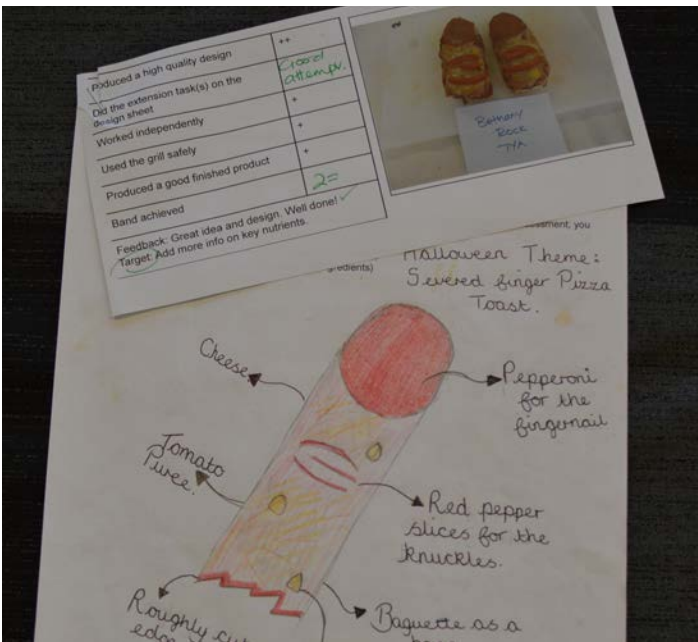 Produced a high quality design
++
Did the extension task(s) on the
design sheet
Good
attempt.
Worked independently
+
Used the grill safely
+
Produced a good finished product
+
Band achieved
2=
Feedback: Great idea and design. Well done!
Target: Add more info on key nutrients.
Bethany
Rock
you
Halloween Theme:
Severed finger Pizza
Toast.
Cheese.
Pepperoni
for the
fingernail
Tomato
Puree.
Red pepper
slices for the
knuckles.
Roughly cut
edge
Baguette as a